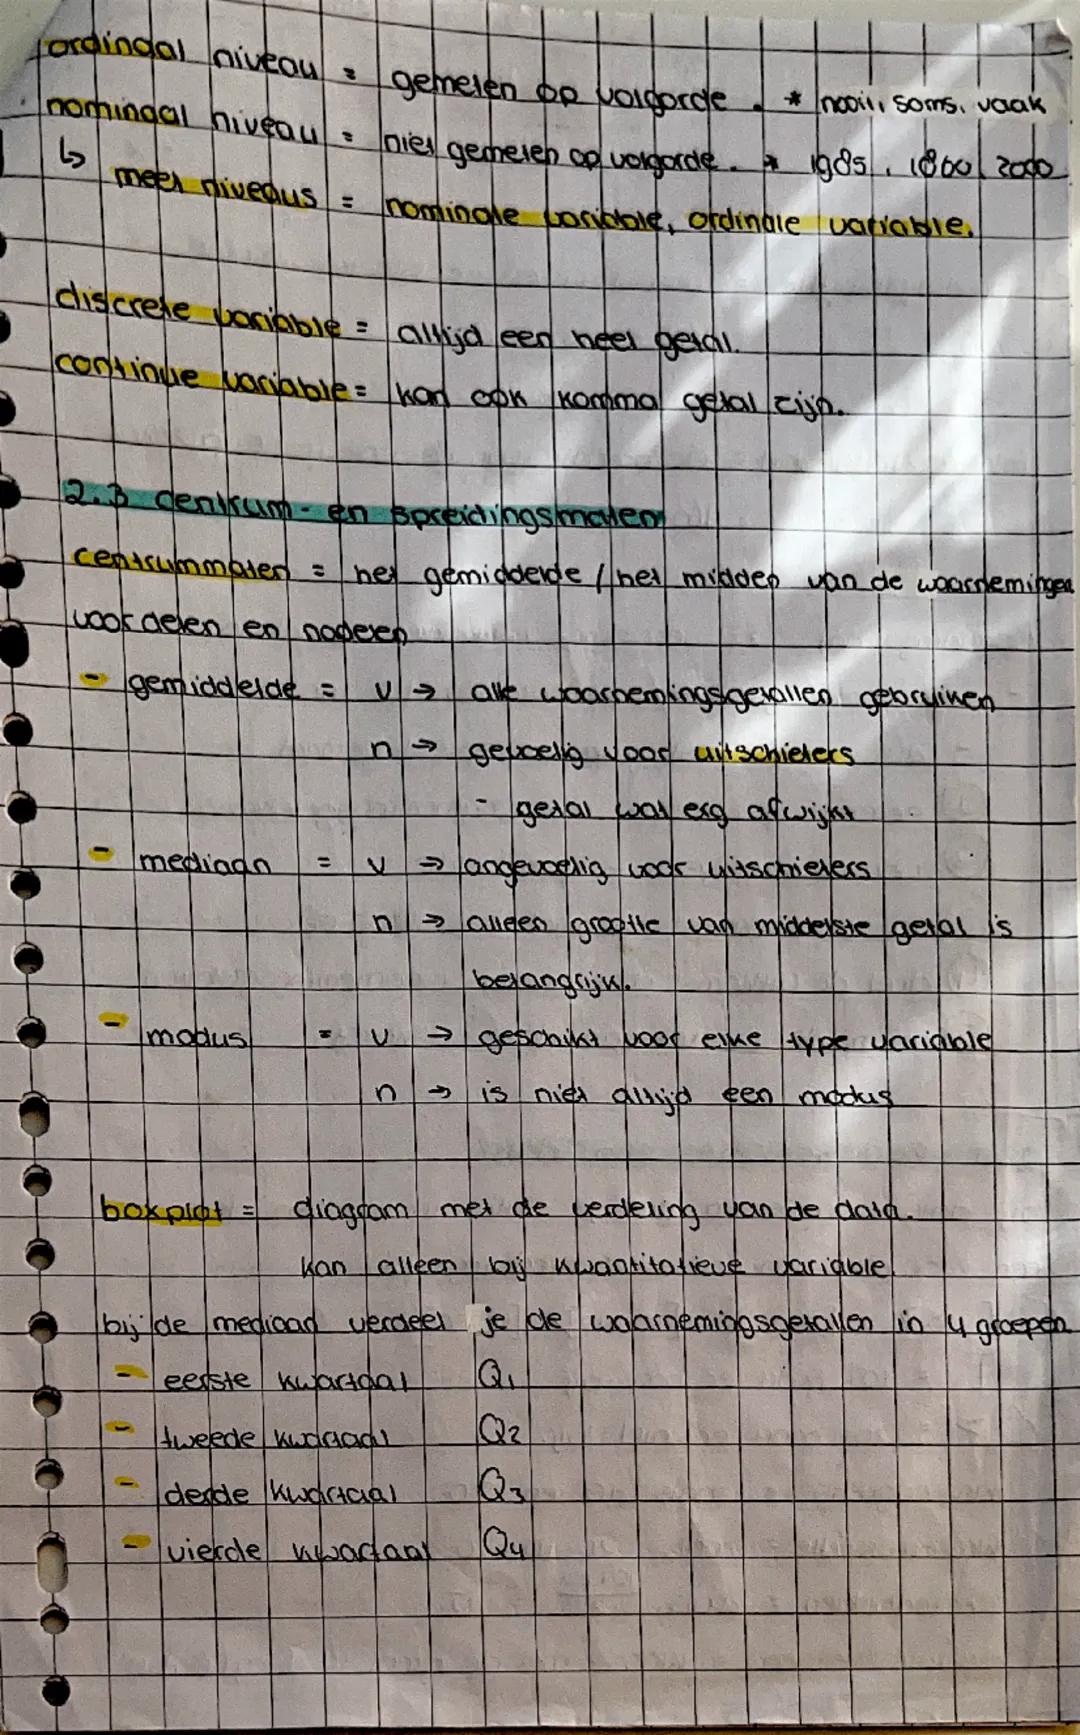 ordinaal niveau = gemeten op volgorde. * nooit, soms, vaak
nominaal niveau = niet gemeten op volgorde. * 1985, 1800, 2000
↳ meet niveaus = nominale variable, ordinale variable.
discrete variable = altijd een heel getal.
continue variable = kan ook komma getal zijn.
2.3 centrum- en spreidingsmaten
centrummaten = het gemiddelde / het midden van de waarnemingen
voordelen en nadelen
- gemiddelde = v → alle waarnemingsgetallen gebruiken
n → gevoelig voor uitschieters
- getal wat erg afwijkt
- mediaan = v → ongevoelig voor uitschieters
n → alleen grootte van middelste getal is
belangrijk.
- modus = v → geschikt voor elke type variable
n → is niet altijd een modus
boxplot = diagram met de verdeling van de data.
kan alleen bij kwantitatieve variable
bij de mediaan verdeel je de waarnemingsgetallen in 4 groepen
- eerste kwartaal Q1
- tweede kwartaal Q2
- derde kwartaal Q3
- vierde kwartaal Q4